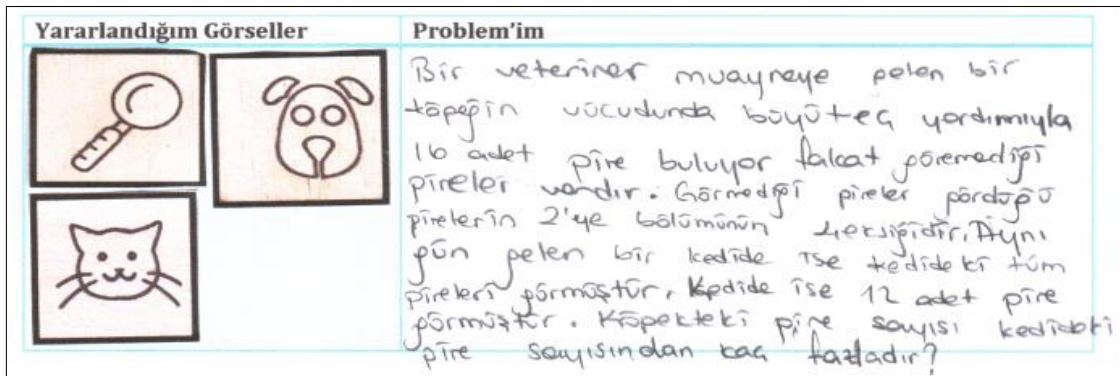 Yararlandığım Görseller
Problem'im
Bir veteriner muayneye gelen bir
köpeğin vücudunda büyüteç yardımıyla
16 adet pire buluyor fakat göremediği
pireler vardır. Görmediği pireler gördüğü
pirelerin 2'ye bölümünün 4 eksiğidir. Aynı
gün gelen bir kedide ise kedideki tüm
pireleri görmüştür. Kedide ise 12 adet pire
görmüştür. Köpekteki pire sayısı kedideki
pire sayısından kaç fazladır?